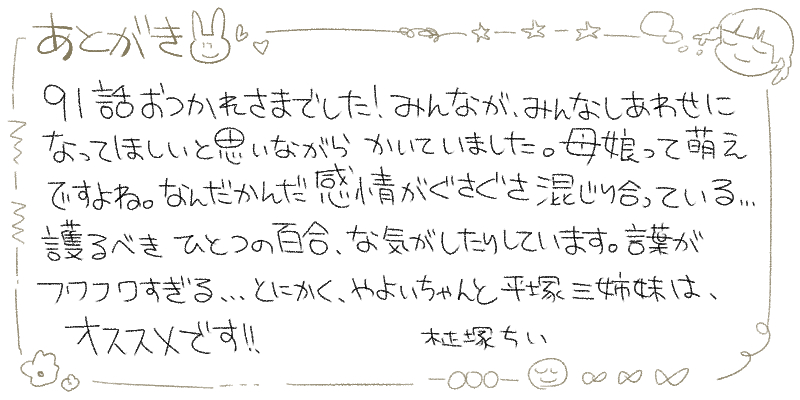 あとがき
91話おつかれさまでした!みんなが、みんなしあわせに
なってほしいと思いながら かいていました。母娘って萌え
ですよね。なんだかんだ感情がぐさぐさ混じり合っている...
護るべき ひとつの百合、な気がしたりしています。言葉が
フワフワすぎる...とにかく、やよいちゃんと平塚三姉妹は、
オススメです!!
椪塚ちい